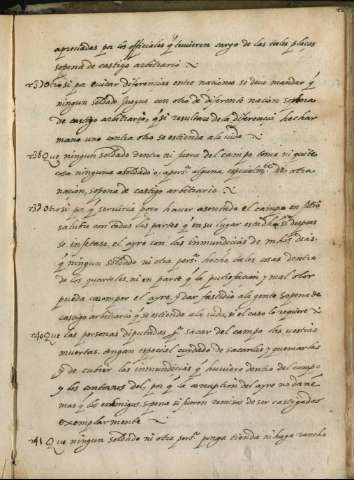 apreciadas por los officiales q̃ tuvieren cargo de las tales plaças
sopena de castigo arbitrario
137 Otro si pa evitar diferencias entre naciones se deve mandar q̃
ningun soldado juegue con otro de diferente nacion sopena
de castigo arbitrario, q̃ si resultare de la diferencia hechar
mano uno contra otro se estienda a la vida
138 Que ningun soldado dentro ni fuera del campo tome ni quite
cosa ninguna a soldado, a persᵃ alguna especialmᵗᵉ de otra
nacion, sopena de castigo arbitrario
139 Otro si por q̃ serviria poco haver asentado el campo en sitio
salubre por todas las partes q̃ en su lugar esta dho si despues
se infetase el ayre con las inmundicias de muchos dias
q̃ ningun soldado ni otra persᵃ hecha tales cosas dentro
de los quarteles, ni en parte q̃ la putrefacion y mal olor
pueda corromper el ayre, y dar fastidio a la gente sopena de
castigo arbitrario y se estienda a la vida, si el caso lo requiere
140 Que las personas diputadas pᵃ sacar del campo las vestias
muertas, tengan especial cuydado de sacarlas y quemarlas
y de cubrir las inmundicias q̃ huviere dentro del campo
y los contornos del, por q̃ la corrupcion del ayre no dañe
mas q̃ los enemigos, sopena si fueren remisos de ser castigados
exemplarmente
141 Que ningun soldado ni otra persᵃ ponga tienda ni haga rancho